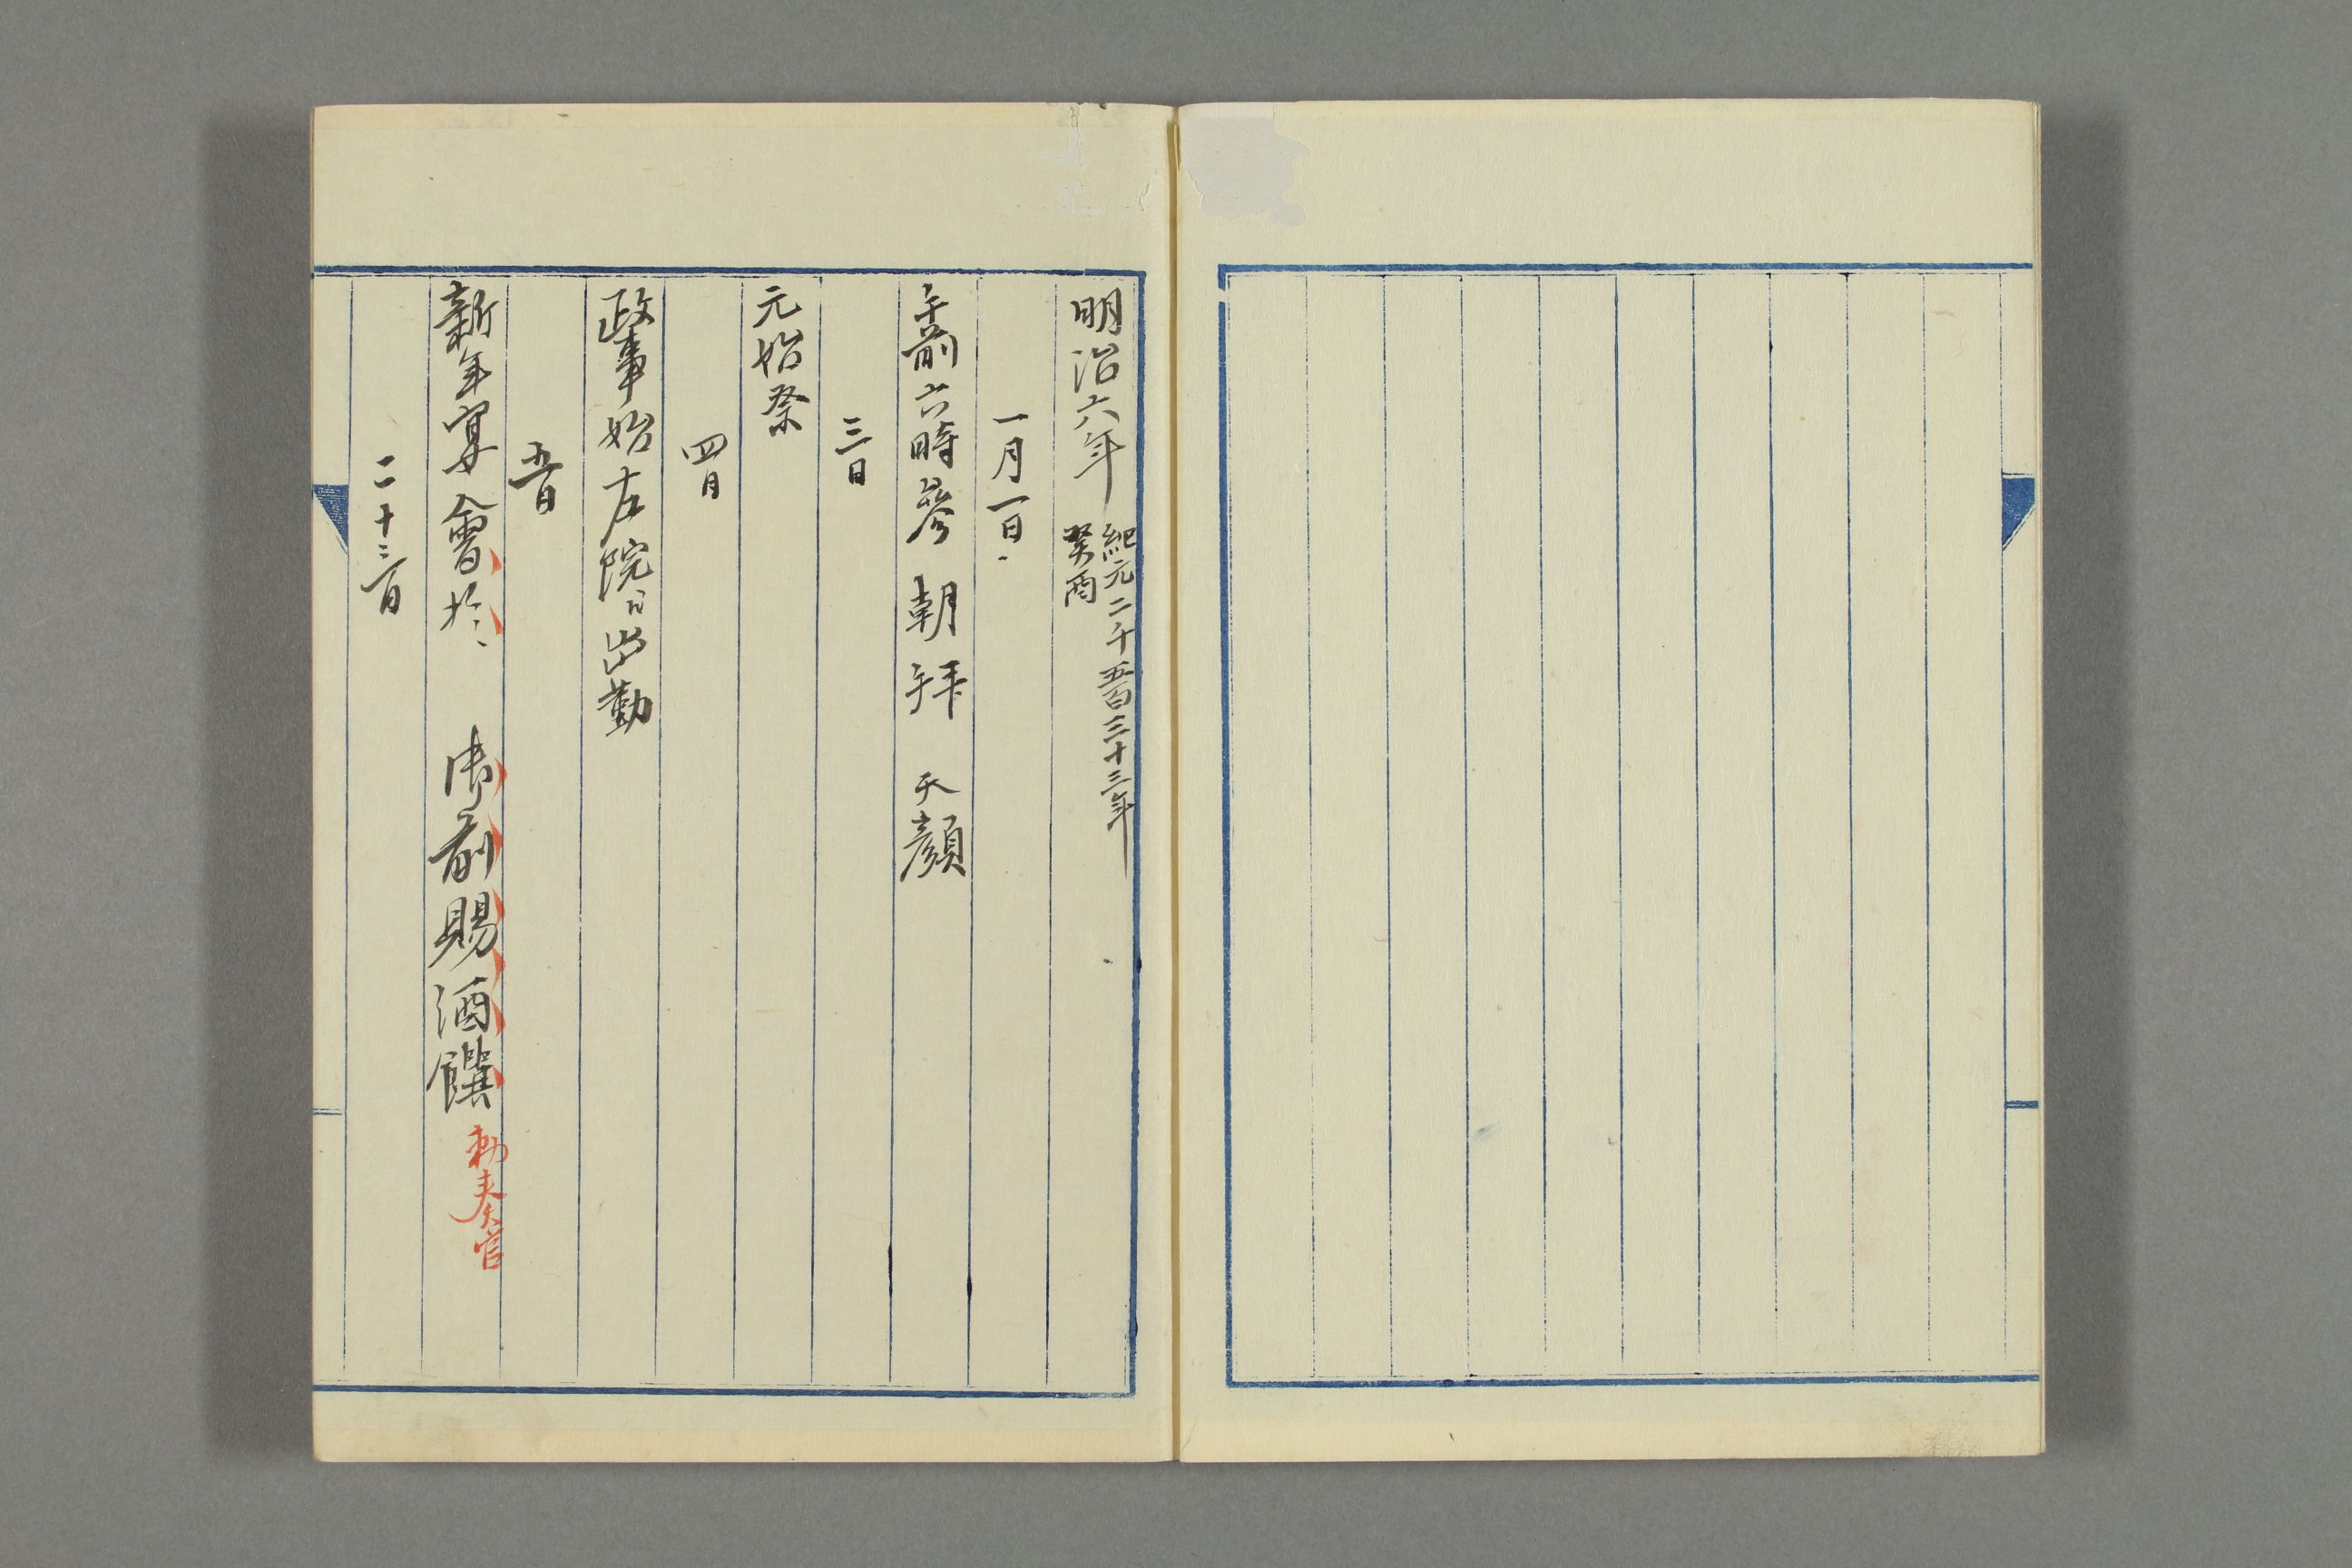 明治六年 紀元二千五百三十三年
癸酉
一月一日
午前六時参 朝拝 天顔
三日
元始祭
四日
政事始左院ニ出勤
五日
新年宴會於 御前賜酒饌 勅奏官
二十三日